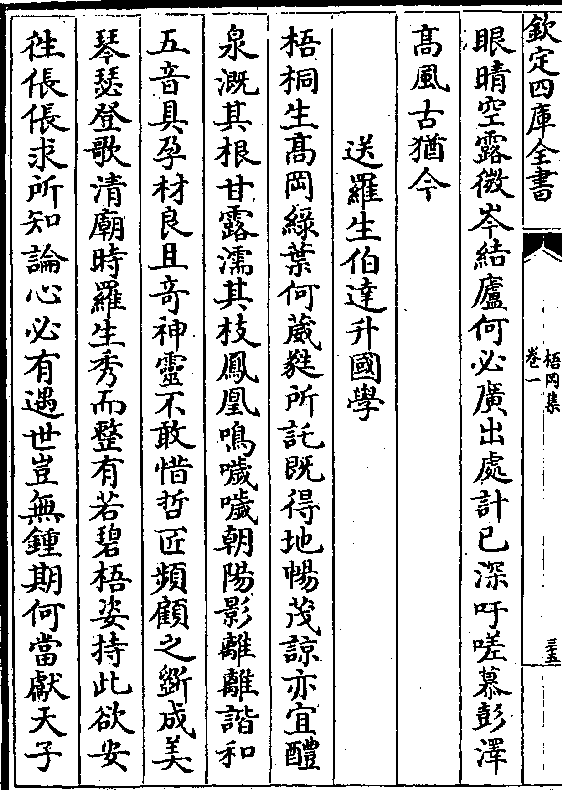 欽定四庫全書
梧岡集
卷一
三五
眼晴空露微岑結廬何必廣出處計已深吁嗟慕彭澤
髙風古猶今
送羅生伯達升國學
梧桐生髙岡綠葉何葳蕤所託既得地暢茂諒亦宜醴
泉溉其根甘露濡其枝鳳凰鳴噦噦朝陽影離離諧和
五音具孕材良且竒神靈不敢惜哲匠頻顧之斵成美
琴瑟登歌清廟時羅生秀而整有若碧梧姿持此欲安
徃倀倀求所知論心必有遇世豈無鍾期何當獻天子